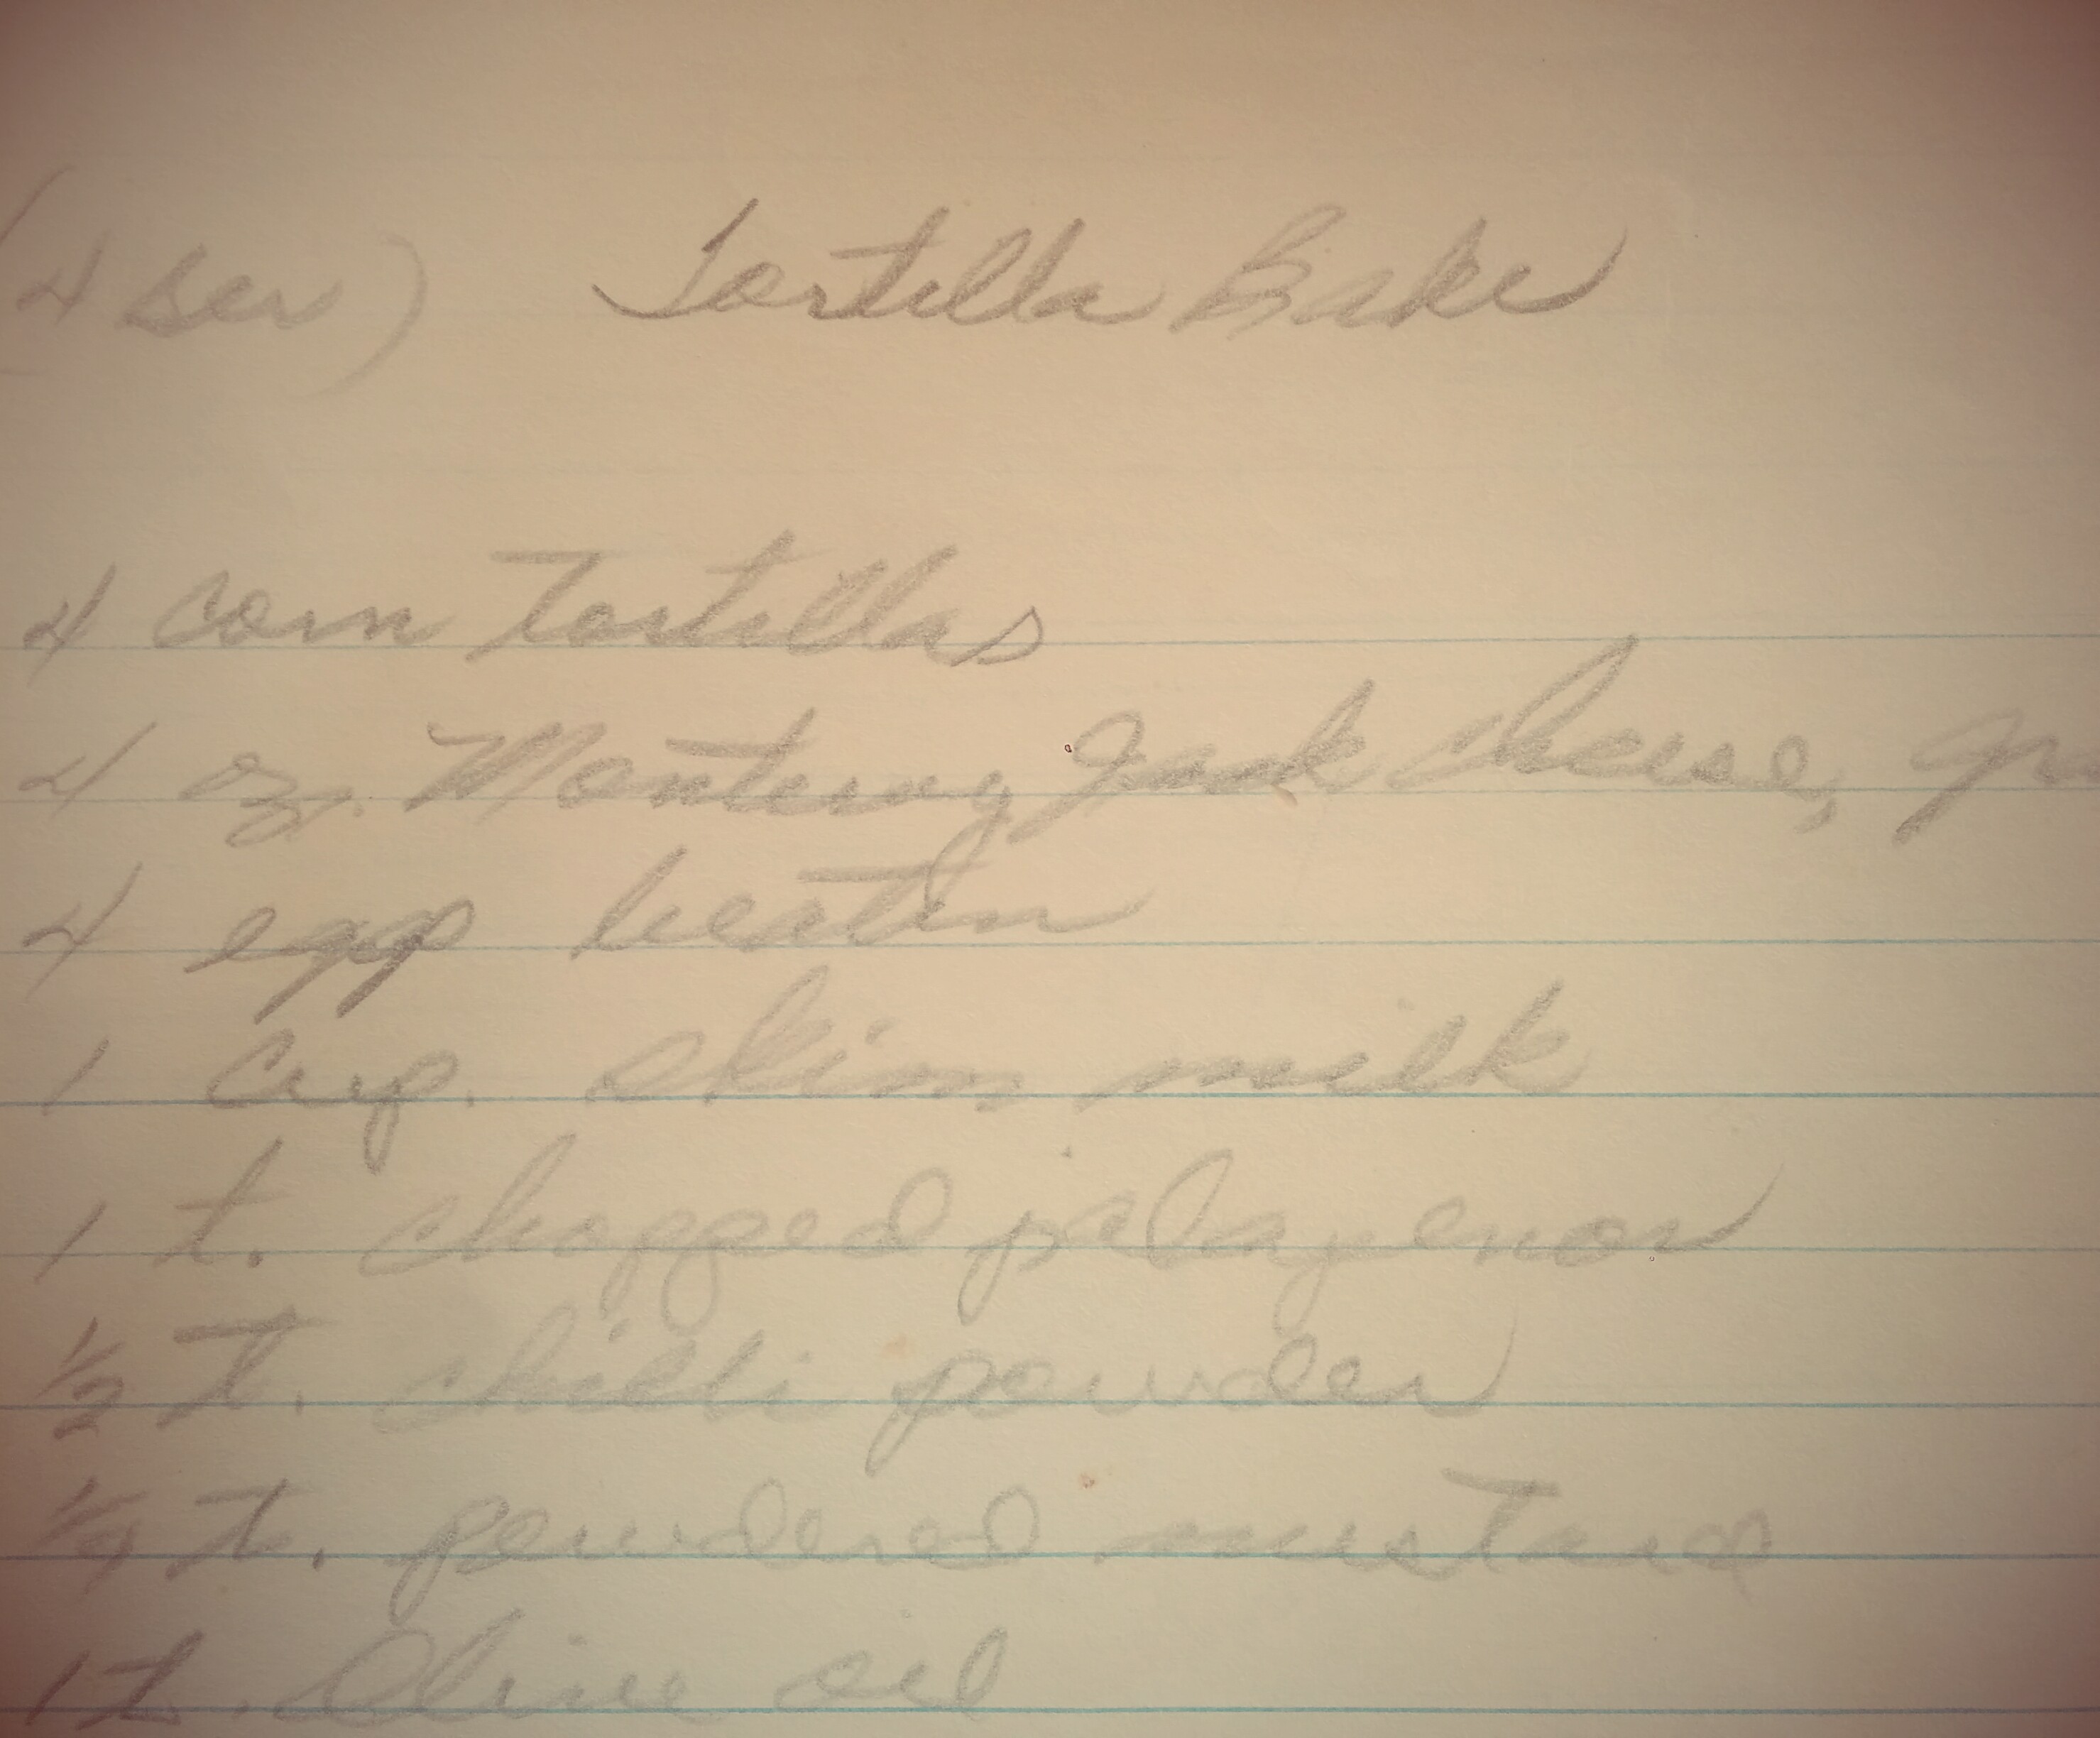 (4 ser) Tortilla Bake
4 corn Tortillas
4 oz. Monteray Jack cheese,
4 eggs beaten
1 cup. skim milk
1 t. chopped
1/2 t. chilli powder
1/4 t. powdered mustard
1 t. Olive oil